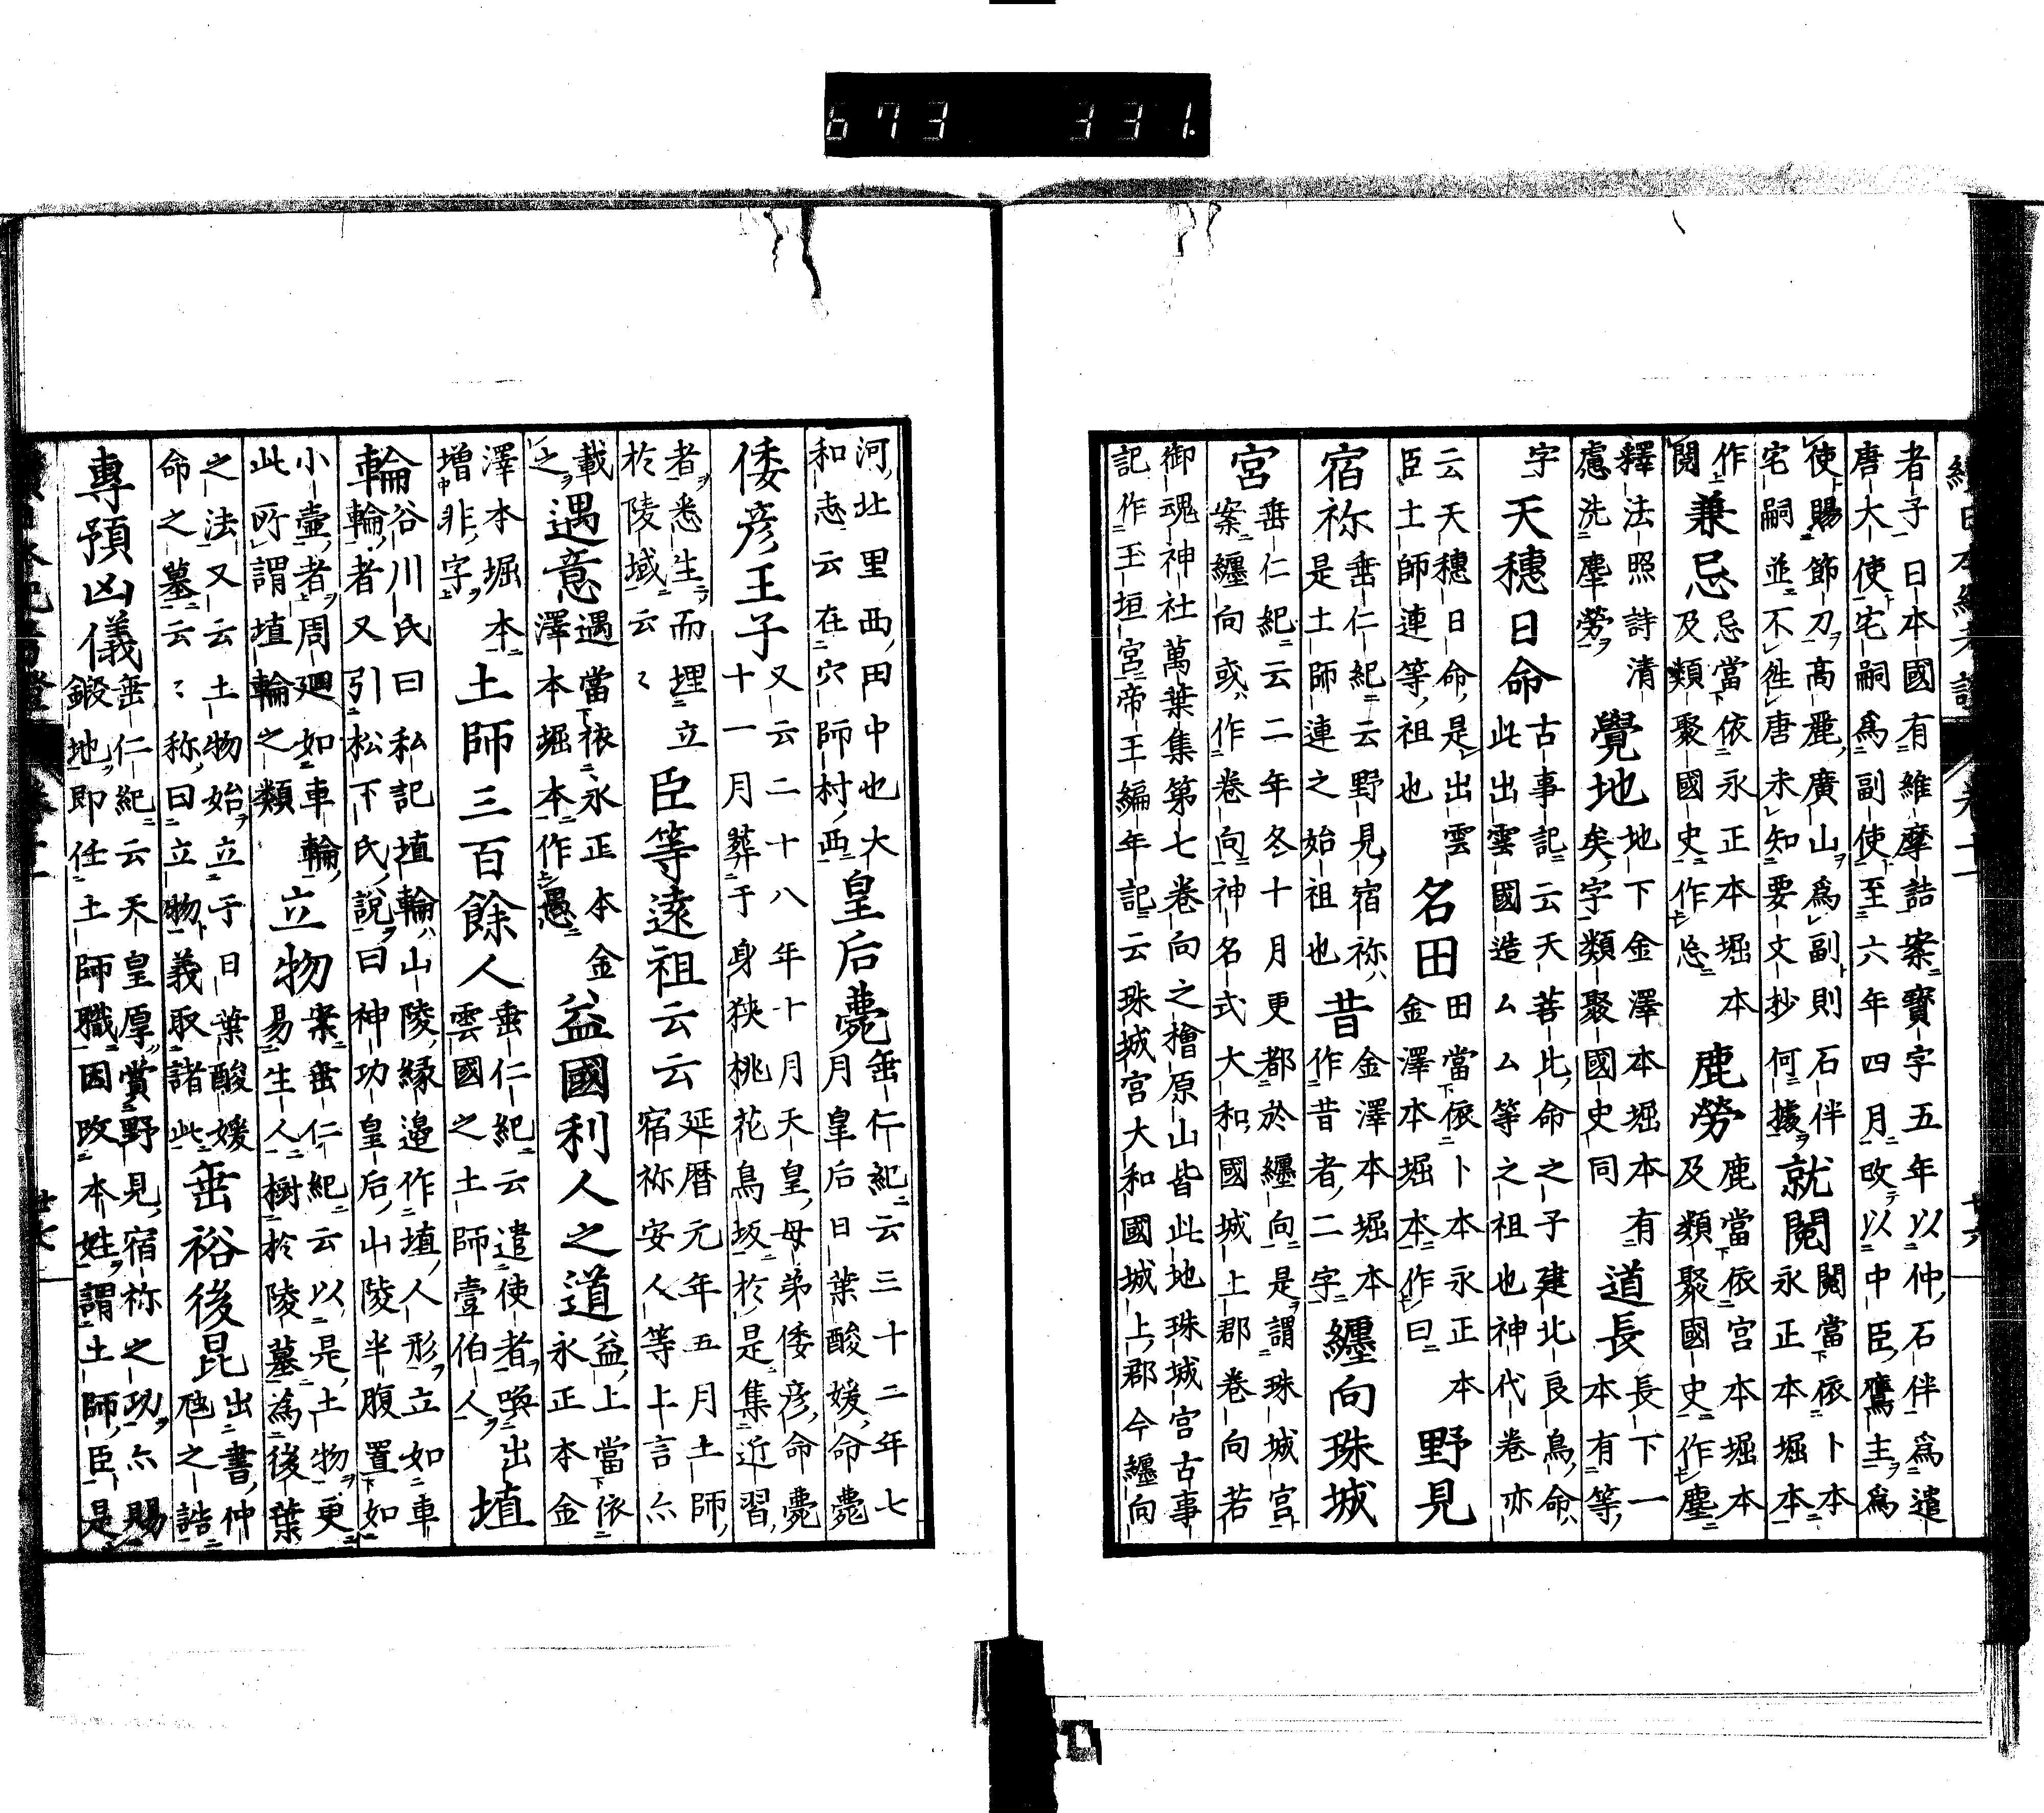 673 331.
者子日本國有維摩詰案寶字五年以仲石伴爲遣
唐大使宅嗣爲副使至六年四月改以中臣鷹主爲
使賜節刀高麗廣山爲副則石伴
宅嗣並不徃唐未知要文抄何據
就閲
閲當依卜本
永正本堀本
作
閲
兼忌
忌當依永正本堀本
及類聚國史作忘
鹿勞
鹿當依宮本堀本
及類聚國史作塵
釋法照詩清
慮洗塵勞
覺地
地下金澤本堀本有
矣字類聚國史同
道長
長下一
本有等
字
天穗日命
古事記云天菩比命之子建比良鳥命
此出雲國造ムム等之祖也神代卷亦
云天穗日命是出雲
臣土師連等祖也
名田
田當依卜本永正本
金澤本堀本作日
野見
宿祢
垂仁紀云野見宿祢
是土師連之始祖也
昔
金澤本堀本
作昔者二字
纒向珠城
宮
垂仁紀云二年冬十月更都於纒向是謂珠城宮
案纒向或作卷向神名式大和國城上郡卷向若
御魂神社萬葉集第七卷向之檜原山皆此地珠城宮古事
記作玉垣宮帝王編年記云珠城宮大和國城上郡今纒向
河北里西田中也大
和志云在穴師村西
皇后薨
垂仁紀云三十二年七
月皇后日葉酸媛命薨
倭彦王子
又云二十八年十月天皇母弟倭彦命薨
十一月葬于身狹桃花鳥坂於是集近習
者悉生而埋立
於陵域云〻
臣等遠祖云云
延暦元年五月土師
宿祢安人等上言亦
載
之
遇意
遇當依永正本金
澤本堀本作愚
益國利人之道
益上當依
永正本金
澤本堀本
增非字
土師三百餘人
垂仁紀云遣使者喚出
雲國之土師壹伯人
埴
輪
谷川氏曰私記埴輪山陵縁邉作埴人形立如車
輪者又引松下氏說曰神功皇后山陵半腹置如
小壷者周廻如車輪
此所謂埴輪之類
立物
案垂仁紀云以是土物更
易生人樹於陵墓爲後葉
之法又云土物始立于日葉酸媛
命之墓云〻称曰立物義取諸此
垂裕後昆
出書仲
虺之誥
專預凶儀
垂仁紀云天皇厚賞野見宿祢之功亦賜
鍛地即任土師職因改本姓謂土師臣是